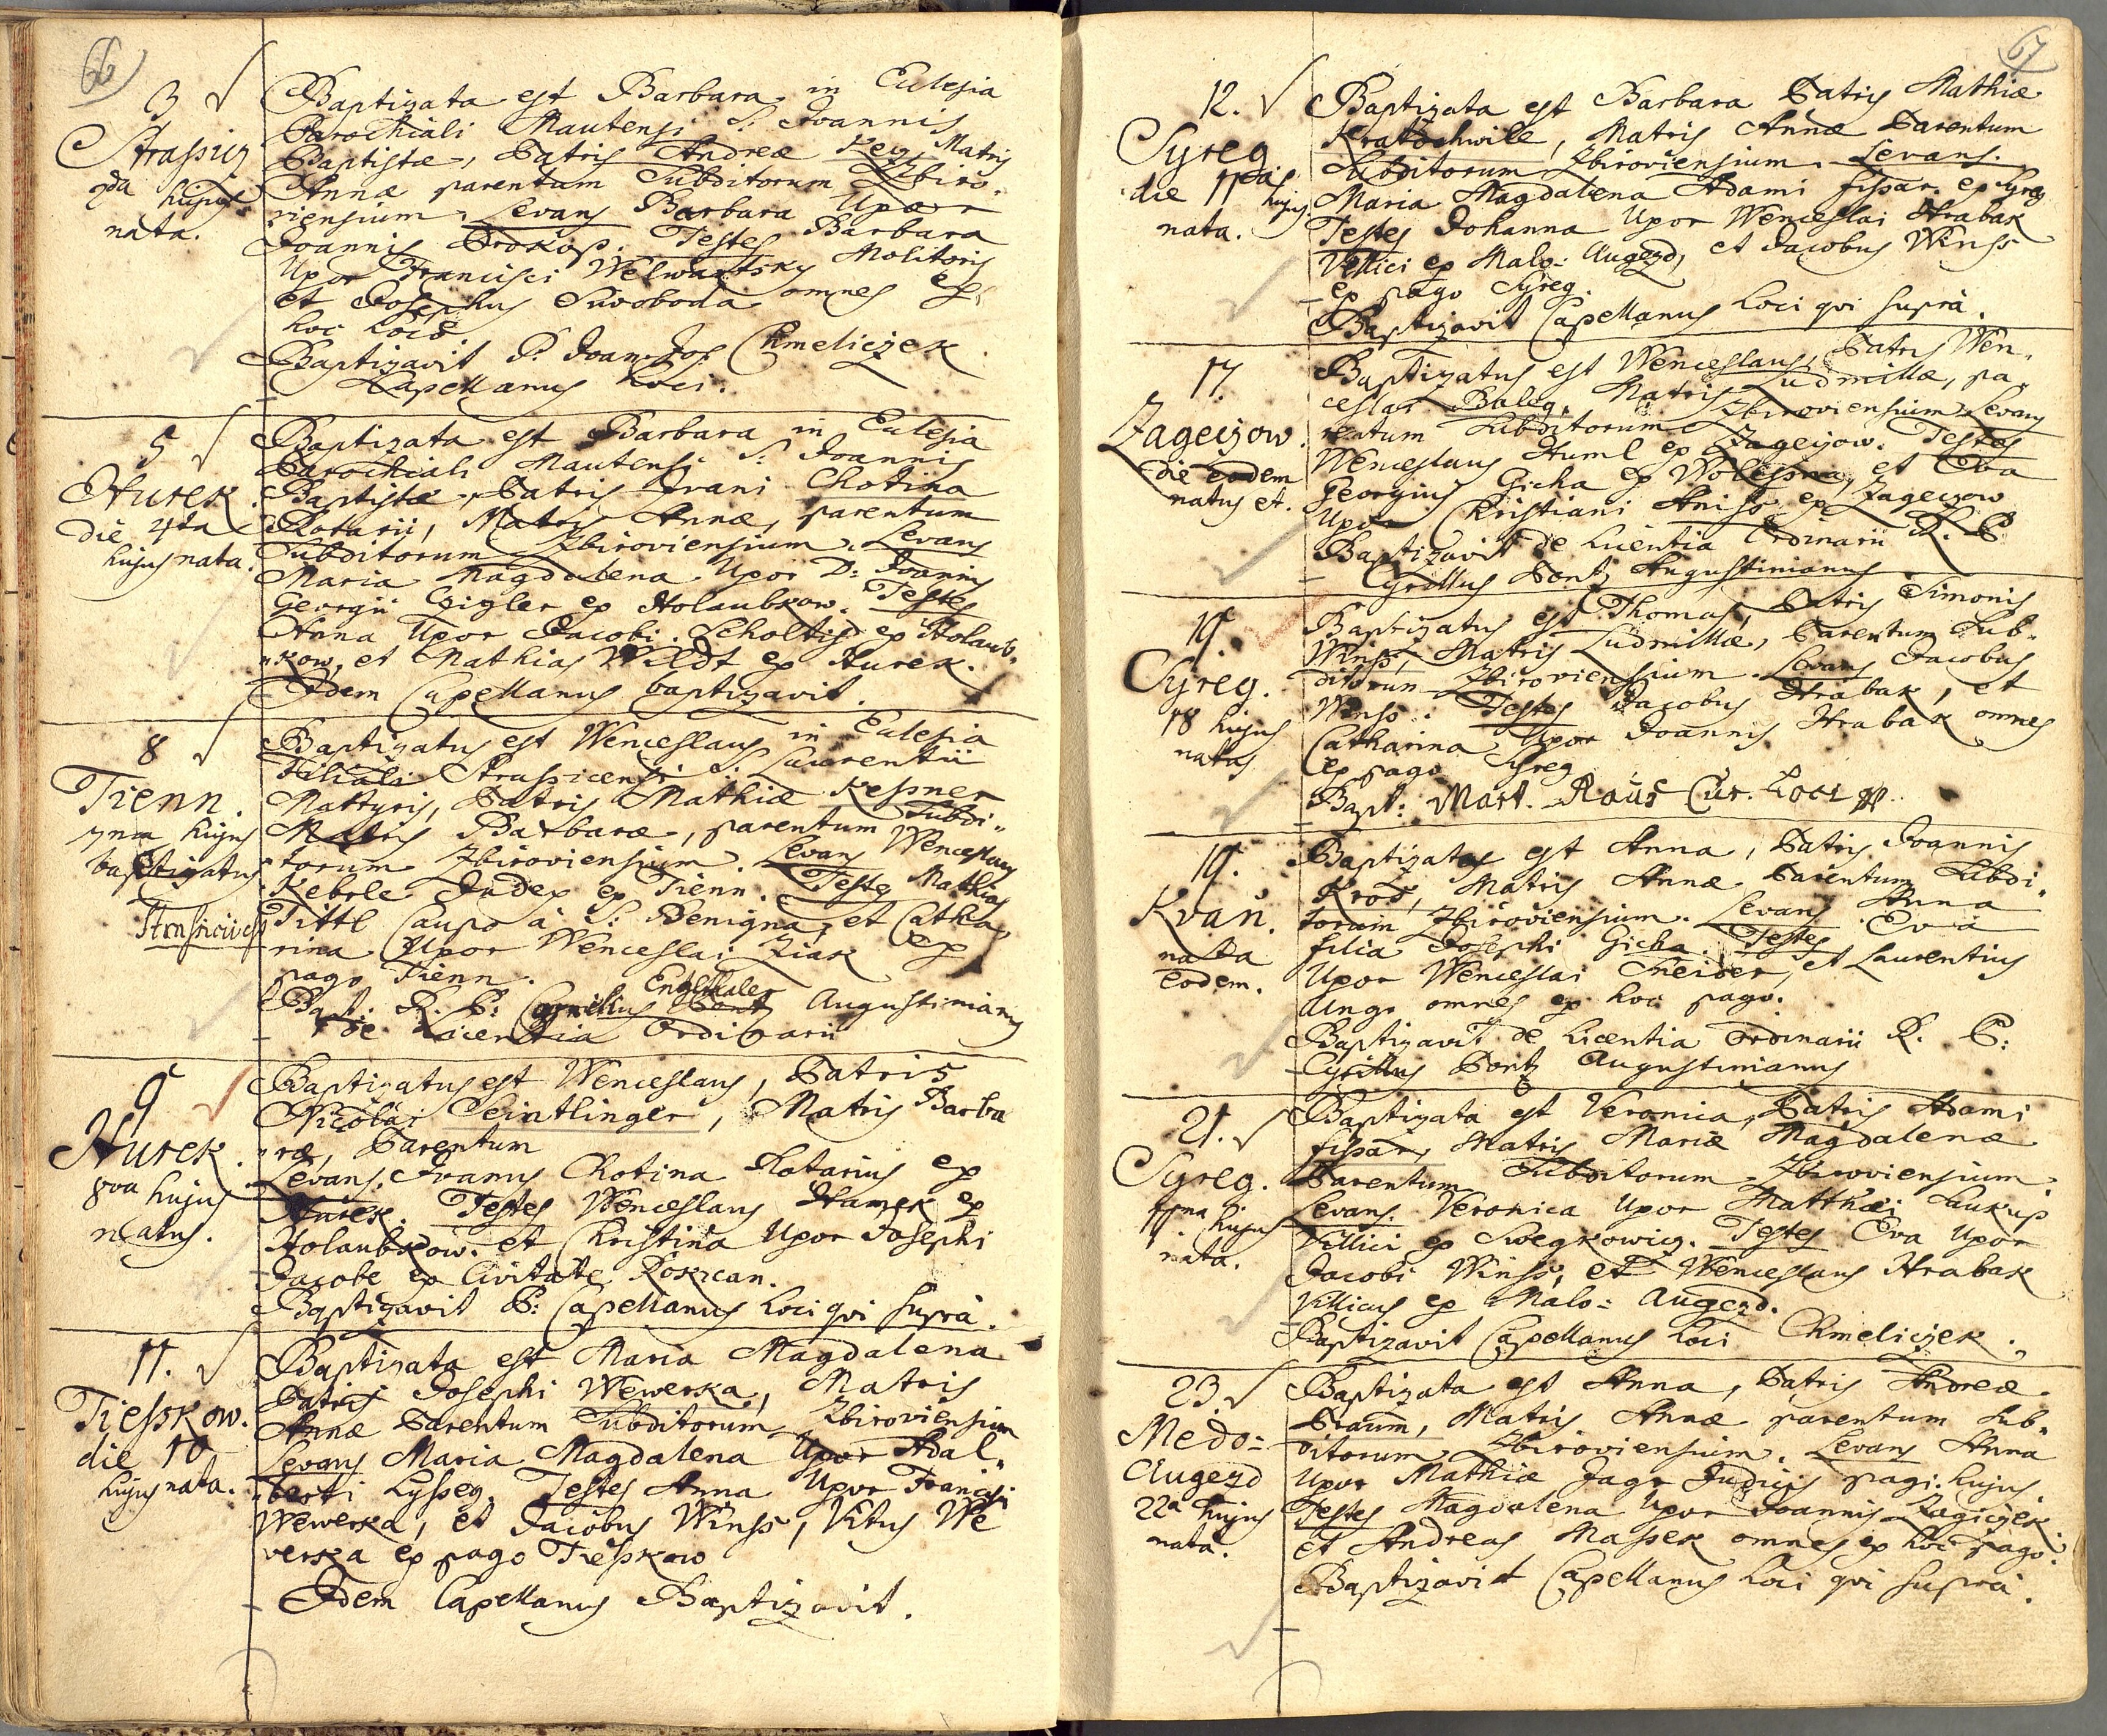 66
3
Strassicz
3tia hujus
nata.
Baptizata est Barbara in Eulesia
Parochiali Mautensi S: Joannis
Baptistæ, Patris Andreæ Matris
Annæ parentum Subditorum Zbiro,
viensium. Levans Barbara Uxor
Joannis Prokop. Testes Barbara
Uxor Francisci Welwartsky Molitoris
et Josephus Swoboda omnes ex
hoc loco.
Baptizavit P. Joan. Jos. Chmeliczek
Capellanus Loci.
5
Hurek
die 4ta
hujus nata.
Baptizata est Barbara in Eulesia
Parochiali Mautensi S: Joannis
Baptistæ, Patris Ivani Chotina
Rotarii, Matris Annæ, parentum
Subditorum Zbiroviensium. Levans
Maria Magdalena Uxor D: Joannis
Georgii Czigler ex Holaubkow. Testes
Anna Uxor Jacobi Scholtis ex Holaub,
"kow, et Mathias Wildt ex Hurek.
Idem Capellanus baptizavit.
8
Tienn.
7ma hujus
baptizatus
Baptizatus est Wenceslaus in Eulesia
Filiali Strassicensi S: Laurentii
Martyris, Patris Mathiæ Kessner
Matris Barbaræ, parentum Subdi"
"torum Zbiroviensium. Levans Wenceslaus
Kebrle Judex ex Tienn. Testes Mathias
Tittl Caupo à S: Benigna, et Catha,
rina Uxor Wenceslai Ziak ex
pago Tienn.
Englthaler
Bapt: R. P: Augustinianus
de Licentia Ordinarii
9
Hurek.
8va hujus
natus.
Baptizatus est Wenceslaus, Patris
Nicolai Seintlinger, Matris Barba
"ræ, Parentum
Levans. Ivanus Chotina Rotarius ex
Hurek. Testes Wenceslaus Hamrk ex
Holaubkow. et Christina Uxor Josephi
Jacobe ex Civitate Rokican.
Baptizavit P: Capellanus loci qvi suprà.
11.
Tiesskow.
die 10
hujus nata.
Baptizata est Maria Magdalena
Patris Josephi Wewerka, Matris
Annæ Parentum Subditorum Zbiroviensium
Levans Maria Magdalena Uxor Adal,
"berti Lysseg. Testes Anna Uxor Francisci
Wewerka, et Jacobus Winss, Vitus We
verka ex pago Tiesskow
Idem Capellanus Baptizavit.
67
12.
Syreg
die 11
hujus
nata.
Baptizata est Barbara Patris Mathiæ
Kratochwile, Matris Annæ Parentum
Subditorum Zbiroviensium. Levans.
Maria Magdalena Adami fissar. ex Syreg
Testes Johanna Uxor Wenceslai Hrabak
Villici ex Malo: Augezd, et Jacobus Winss
ex pago Syreg.
Baptizavit Capellanus loci qvi suprà.
17.
Zageczow.
Die eodem
natus et.
Baptizatus est Wenceslaus, Patris Wen,
ceslai Baleg, Matris Ludmillæ, pa,
rentum Subditorum Zbiroviensium Levans
Wenceslaus Huml ex Zageczow. Testes
Georgius Gicha ex Wolessna, et Eva
Uxor Christiani Aniss ex Zageczow
Baptizavit de licentia Ordinarii R. P.
Cyrillus Pontz Augustinianus
19.
Syreg.
18 hujus
natus
Baptizatus est Thomas, Patris Simonis
Winss, Matris Ludmillæ, Parentum Sub,
ditorum Zbiroviensium. Levans Jacobus
Winss. Testes Jacobus Hrabak, et
Catharina Uxor Joannis Hrabak omnes
ex pago Syreg
Bapt: Mart. Raus Cur. Loci
19.
Kvañ.
nata
eodem.
Baptizata est Anna, Patris Joannis
Krod, Matris Annæ Parentum Subdi,
torum Zbiroviensium. Levans Anna
filia Josephi Gicha. Testes Eva
Uxor Wenceslai Sneider, et Laurentius
Ungr omnes ex hoc pago.
Baptizavit de Licentia Ordinarii R. P:
Cyrillus Pontz Augustinianus
21.
Syreg.
hujus
nata.
Baptizata est Veronica, Patris Adami
fissar, Matris Mariæ Magdalenæ
Parentum Subditorum Zbiroviensium.
Levans. Veronica Uxor Matthæi Laukup
Villici ex Swegkowicz. Testes Eva Uxor
Jacobi Winss, et Wenceslaus Hrabak
Villicus ex Malo: Augezd.
Baptizavit Capellanus loci Chmeliczek.
23.
Medo:
Augezd
22a hujus
nata.
Baptizata est Anna, Patris Andreæ
Braum, Matris Annæ parentum Sub,
ditorum Zbiroviensium. Levans Anna
Uxor Mathiæ Jagr Judicis pagi hujus
Testes Magdalena Uxor Joannis Zagiczek
et Andreas Massek omnes ex hoc pago.
Baptizavit Capellanus loci qvi suprà.